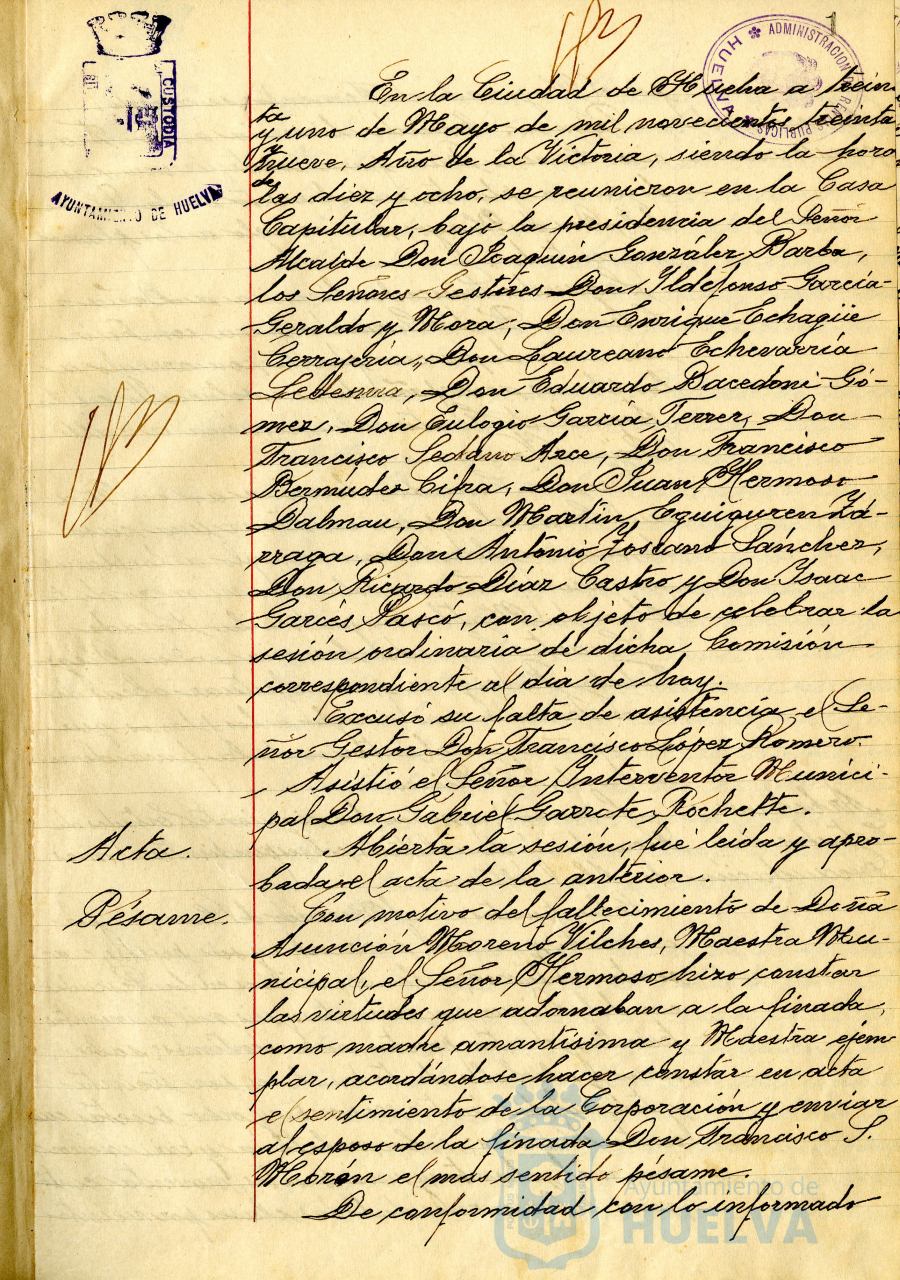 1
CUSTODIA
AYUNTAMIENTO DE HUELVA
HUELVA * ADMINISTRACION DE RENTAS PUBLICAS *
En la Ciudad de Huelva a trein-
ta y uno de Mayo de mil novecientos treinta
y nueve, Año de la Victoria, siendo la hora
de las diez y ocho, se reunieron en la Casa
Capitular, bajo la presidencia del Señor
Alcalde Don Joaquín González Barba,
los Señores Gestores Don Ildefonso García-
Geraldo y Mora, Don Enrique Echagüe
Cerrajería, Don Laureano Echevarría
Ledesma, Don Eduardo Bacedoni Gó-
mez, Don Eulogio García Ferrer, Don
Francisco Sedano Arce, Don Francisco
Bermúdez Cifra, Don Juan Hermoso
Dalmau, Don Martín Eguiguren Zá-
rraga, Don Antonio Toscano Sánchez,
Don Ricardo Díaz Castro y Don Isaac
Garcés Pascó, con objeto de celebrar la
sesión ordinaria de dicha Comisión
correspondiente al dia de hoy.
Excusó su falta de asistencia el Se-
ñor Gestor Don Francisco López Romero.
Asistió el Señor Interventor Munici-
pal Don Gabriel Garrote Rochette.
Acta.
Abierta la sesión, fué leida y apro-
bada el acta de la anterior.
Pésame.
Con motivo del fallecimiento de Doña
Asunción Moreno Vilches, Maestra Mu-
nicipal, el Señor Hermoso hizo constar
las virtudes que adornaban a la finada,
como madre amantísima y Maestra ejem
plar, acordándose hacer constar en acta
el sentimiento de la Corporación y enviar
al esposo de la finada Don Francisco S.
Morón el mas sentido pésame.
De conformidad con lo informado
Ayuntamiento de
HUELVA